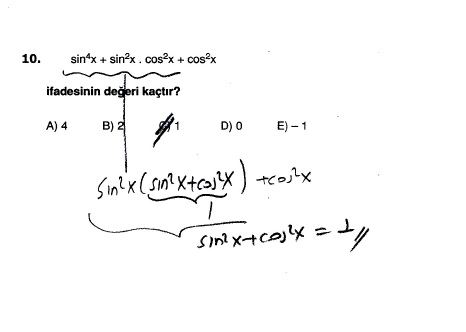 10. sin⁴x + sin²x . cos²x + cos²x
ifadesinin değeri kaçtır?
A) 4 B) 2 C) 1 D) 0 E) – 1
sin²x (sin²x+cos²x) + cos²x
1
sin²x+cos²x = 1